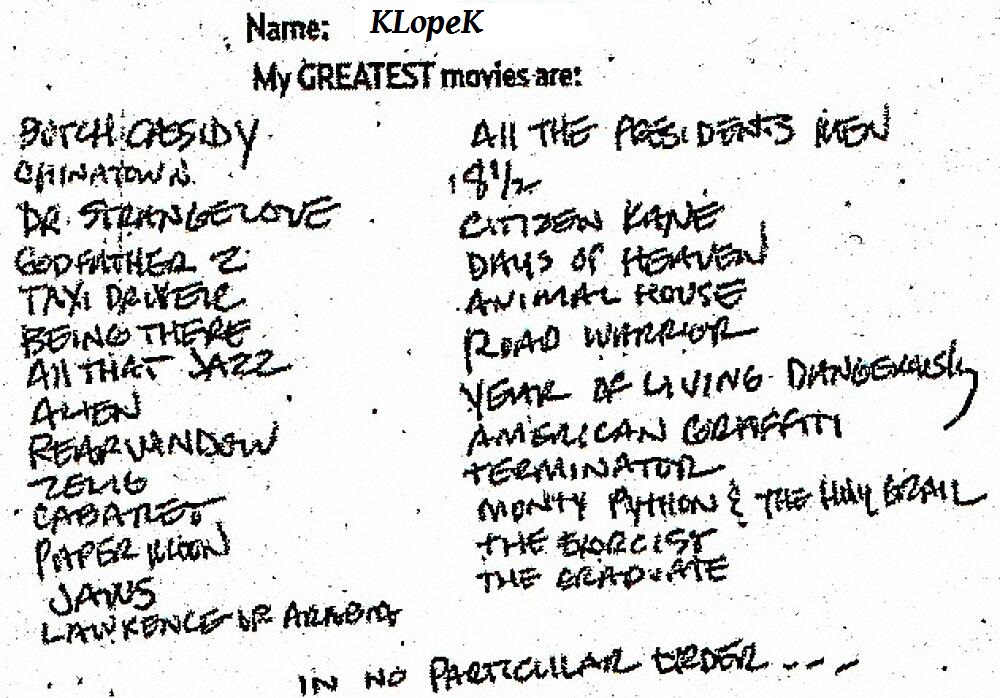 Name: KLopeK
My GREATEST movies are:
BUTCH CASSIDY
CHINATOWN
DR. STRANGELOVE
GODFATHER 2
TAXI DRIVER
BEING THERE
All THAT JAZZ
ALIEN
REAR WINDOW
ZELIG
CABARET
PAPER MOON
JAWS
LAWRENCE OF ARABIA
All THE PRESIDENTS MEN
8 1/2
CITIZEN KANE
DAYS OF HEAVEN
ANIMAL HOUSE
ROAD WARRIOR
YEAR OF LIVING DANGEROUSLY
AMERICAN GRAFFITI
TERMINATOR
MONTY PYTHON & THE HOLY GRAIL
THE EXORCIST
THE GRADUATE
IN NO PARTICULAR ORDER - - -